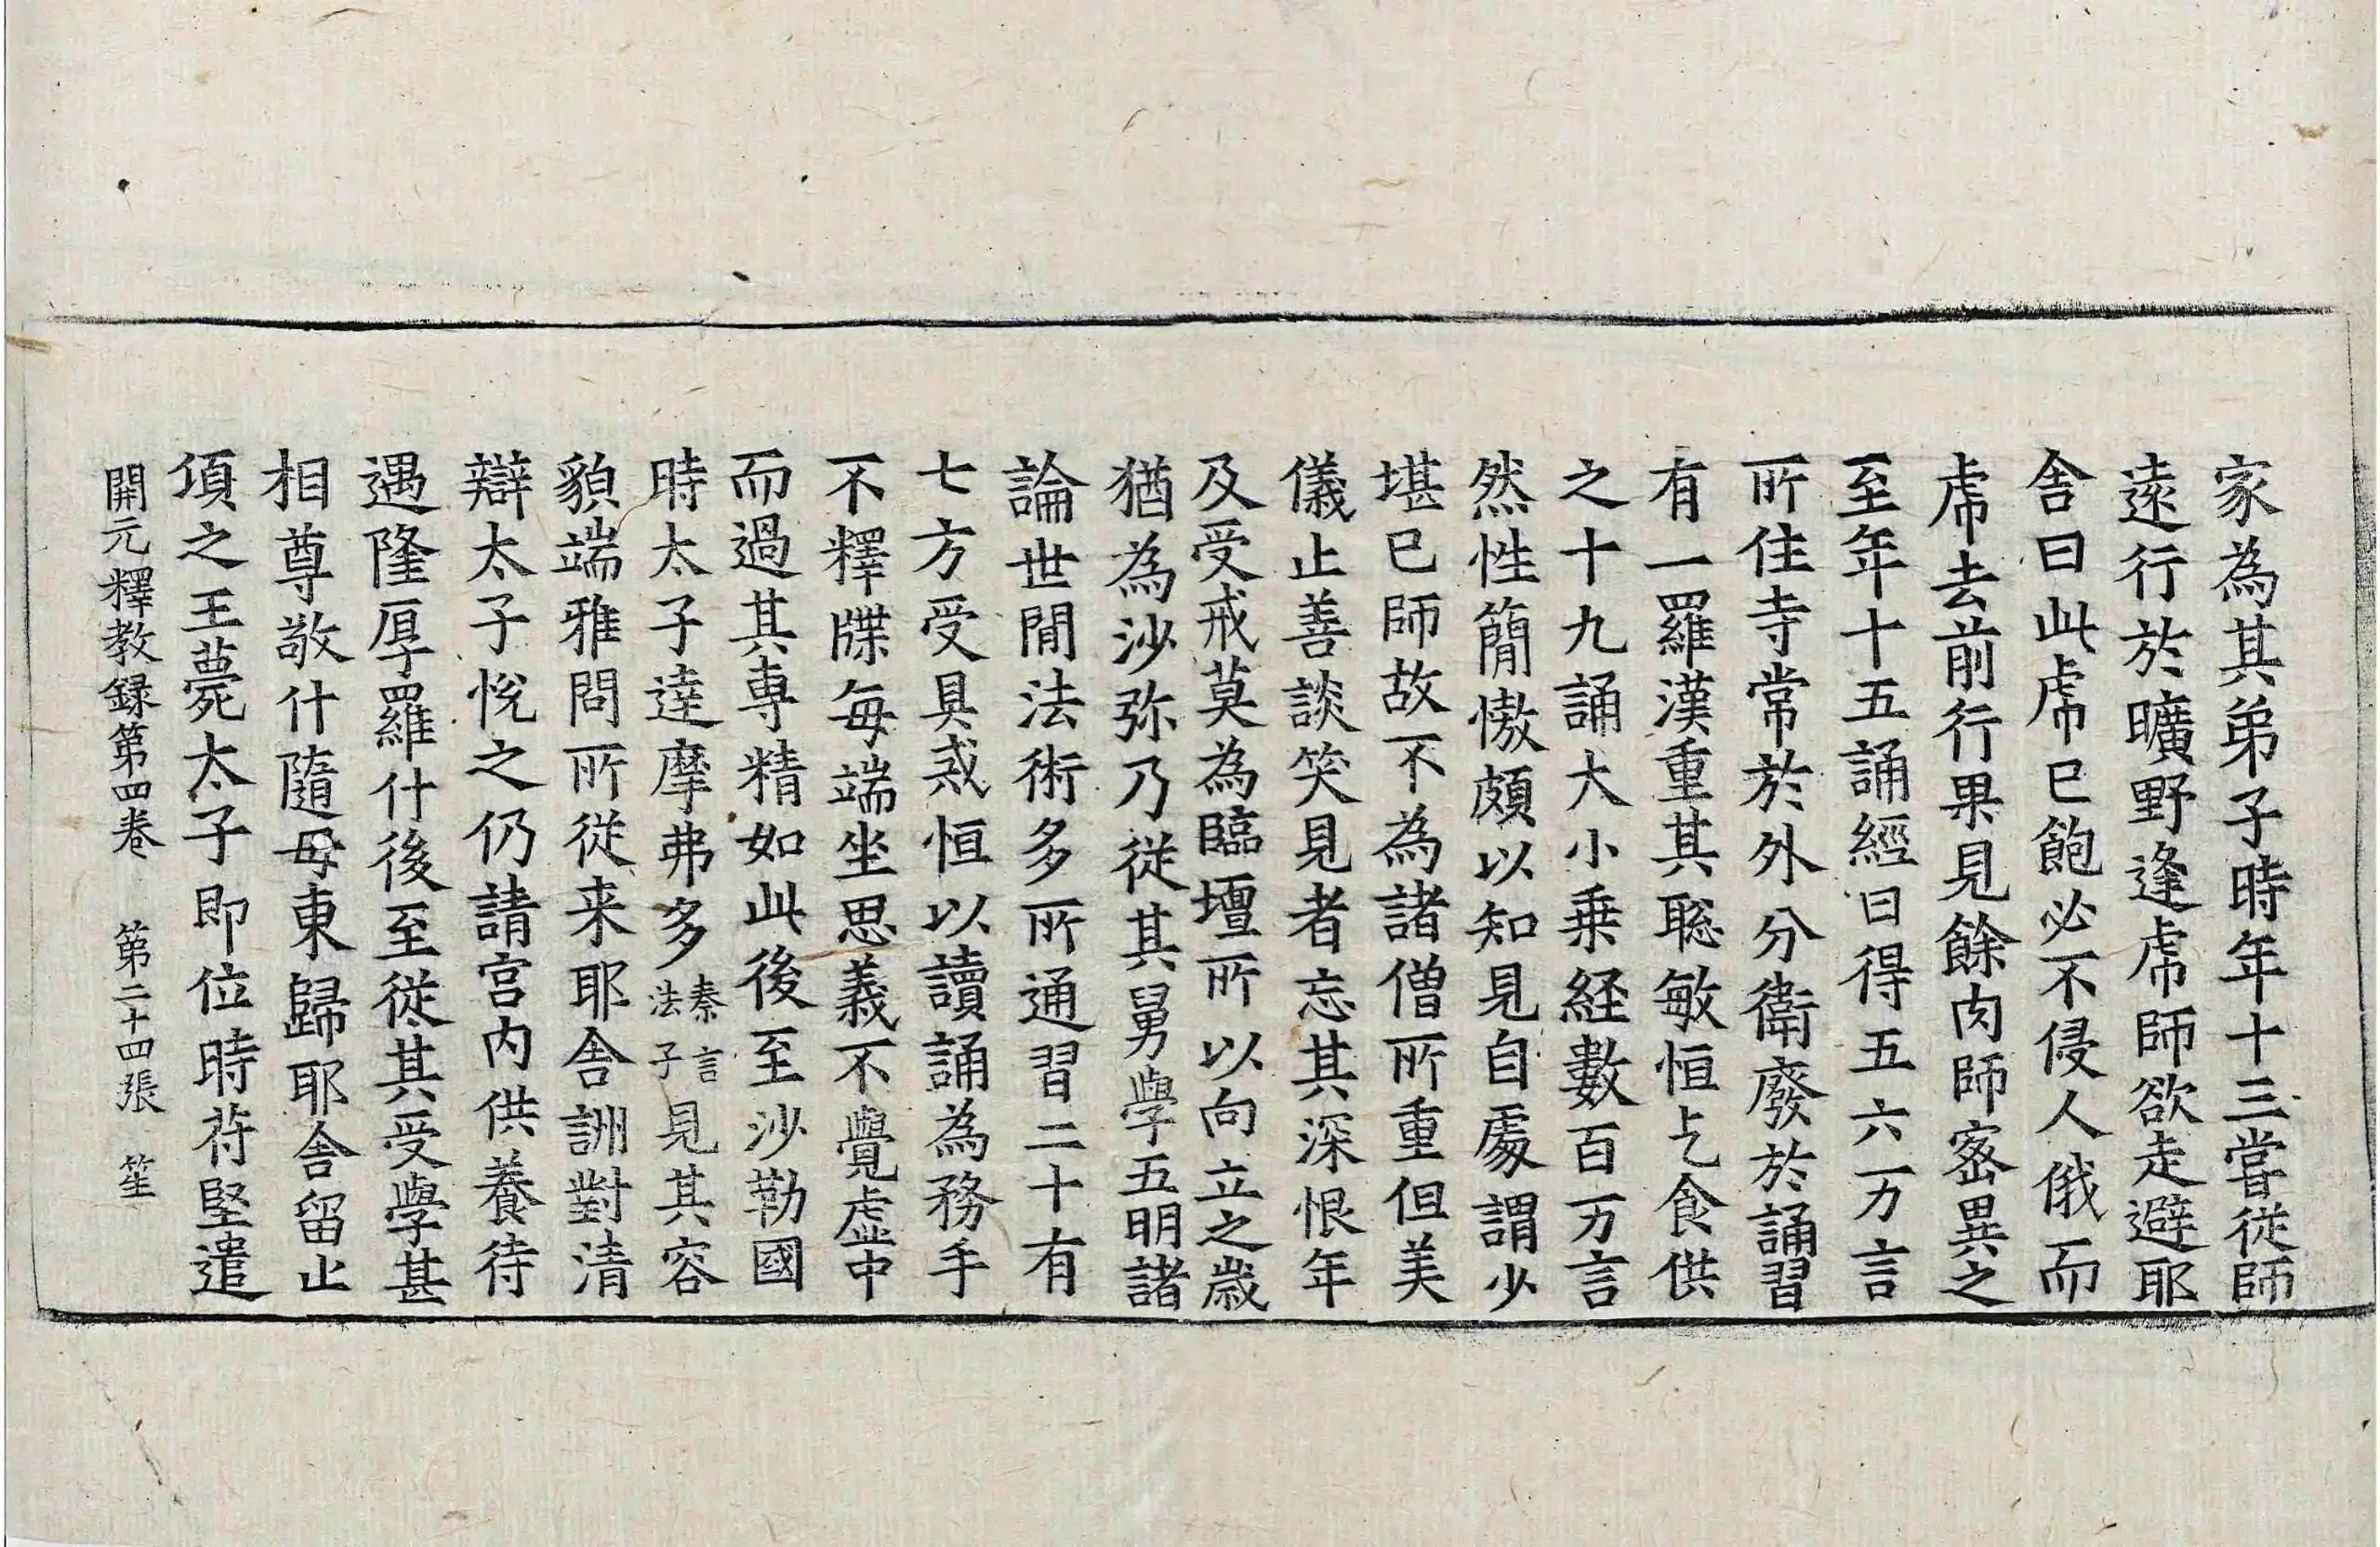 家為其弟子時年十三嘗従師
遠行於曠野逢虎師欲走避耶
舍曰此虎已飽必不侵人俄而
虎去前行果見餘肉師密異之
至年十五誦經日得五六万言
所住寺常於外分衛廢於誦習
有一羅漢重其聡敏恒乞食供
之十九誦大小乗経數百万言
然性簡慠頗以知見自處謂少
堪已師故不為諸僧所重但美
儀止善談笑見者忘其深恨年
及受戒莫為臨壇所以向立之歲
猶為沙弥乃從其舅學五明諸
論世間法術多所通習二十有
七方受具戒恒以讀誦為務手
不釋牒每端坐思義不覺虛中
而過其專精如此後至沙勒國
時太子達摩弗多秦言法子見其容
貌端雅問所從来耶舍詶對清
辯太子悅之仍請宮内供養待
遇隆厚羅什後至從其受學甚
相尊敬什隨母東歸耶舍留止
頃之王薨太子即位時苻堅遣
開元釋教録第四卷 第二十四張 笙